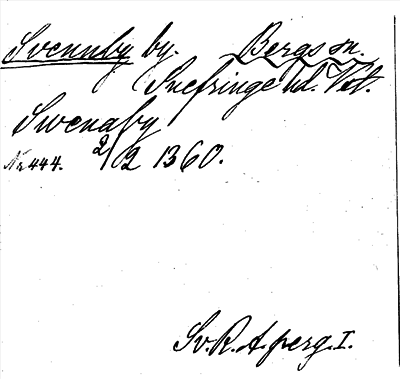 Svennby by. Bergs sn.
Snefringe hd. Vstm.
Swenaby
No 444. 2/2 1360.
Sv. R. A. perg. I.